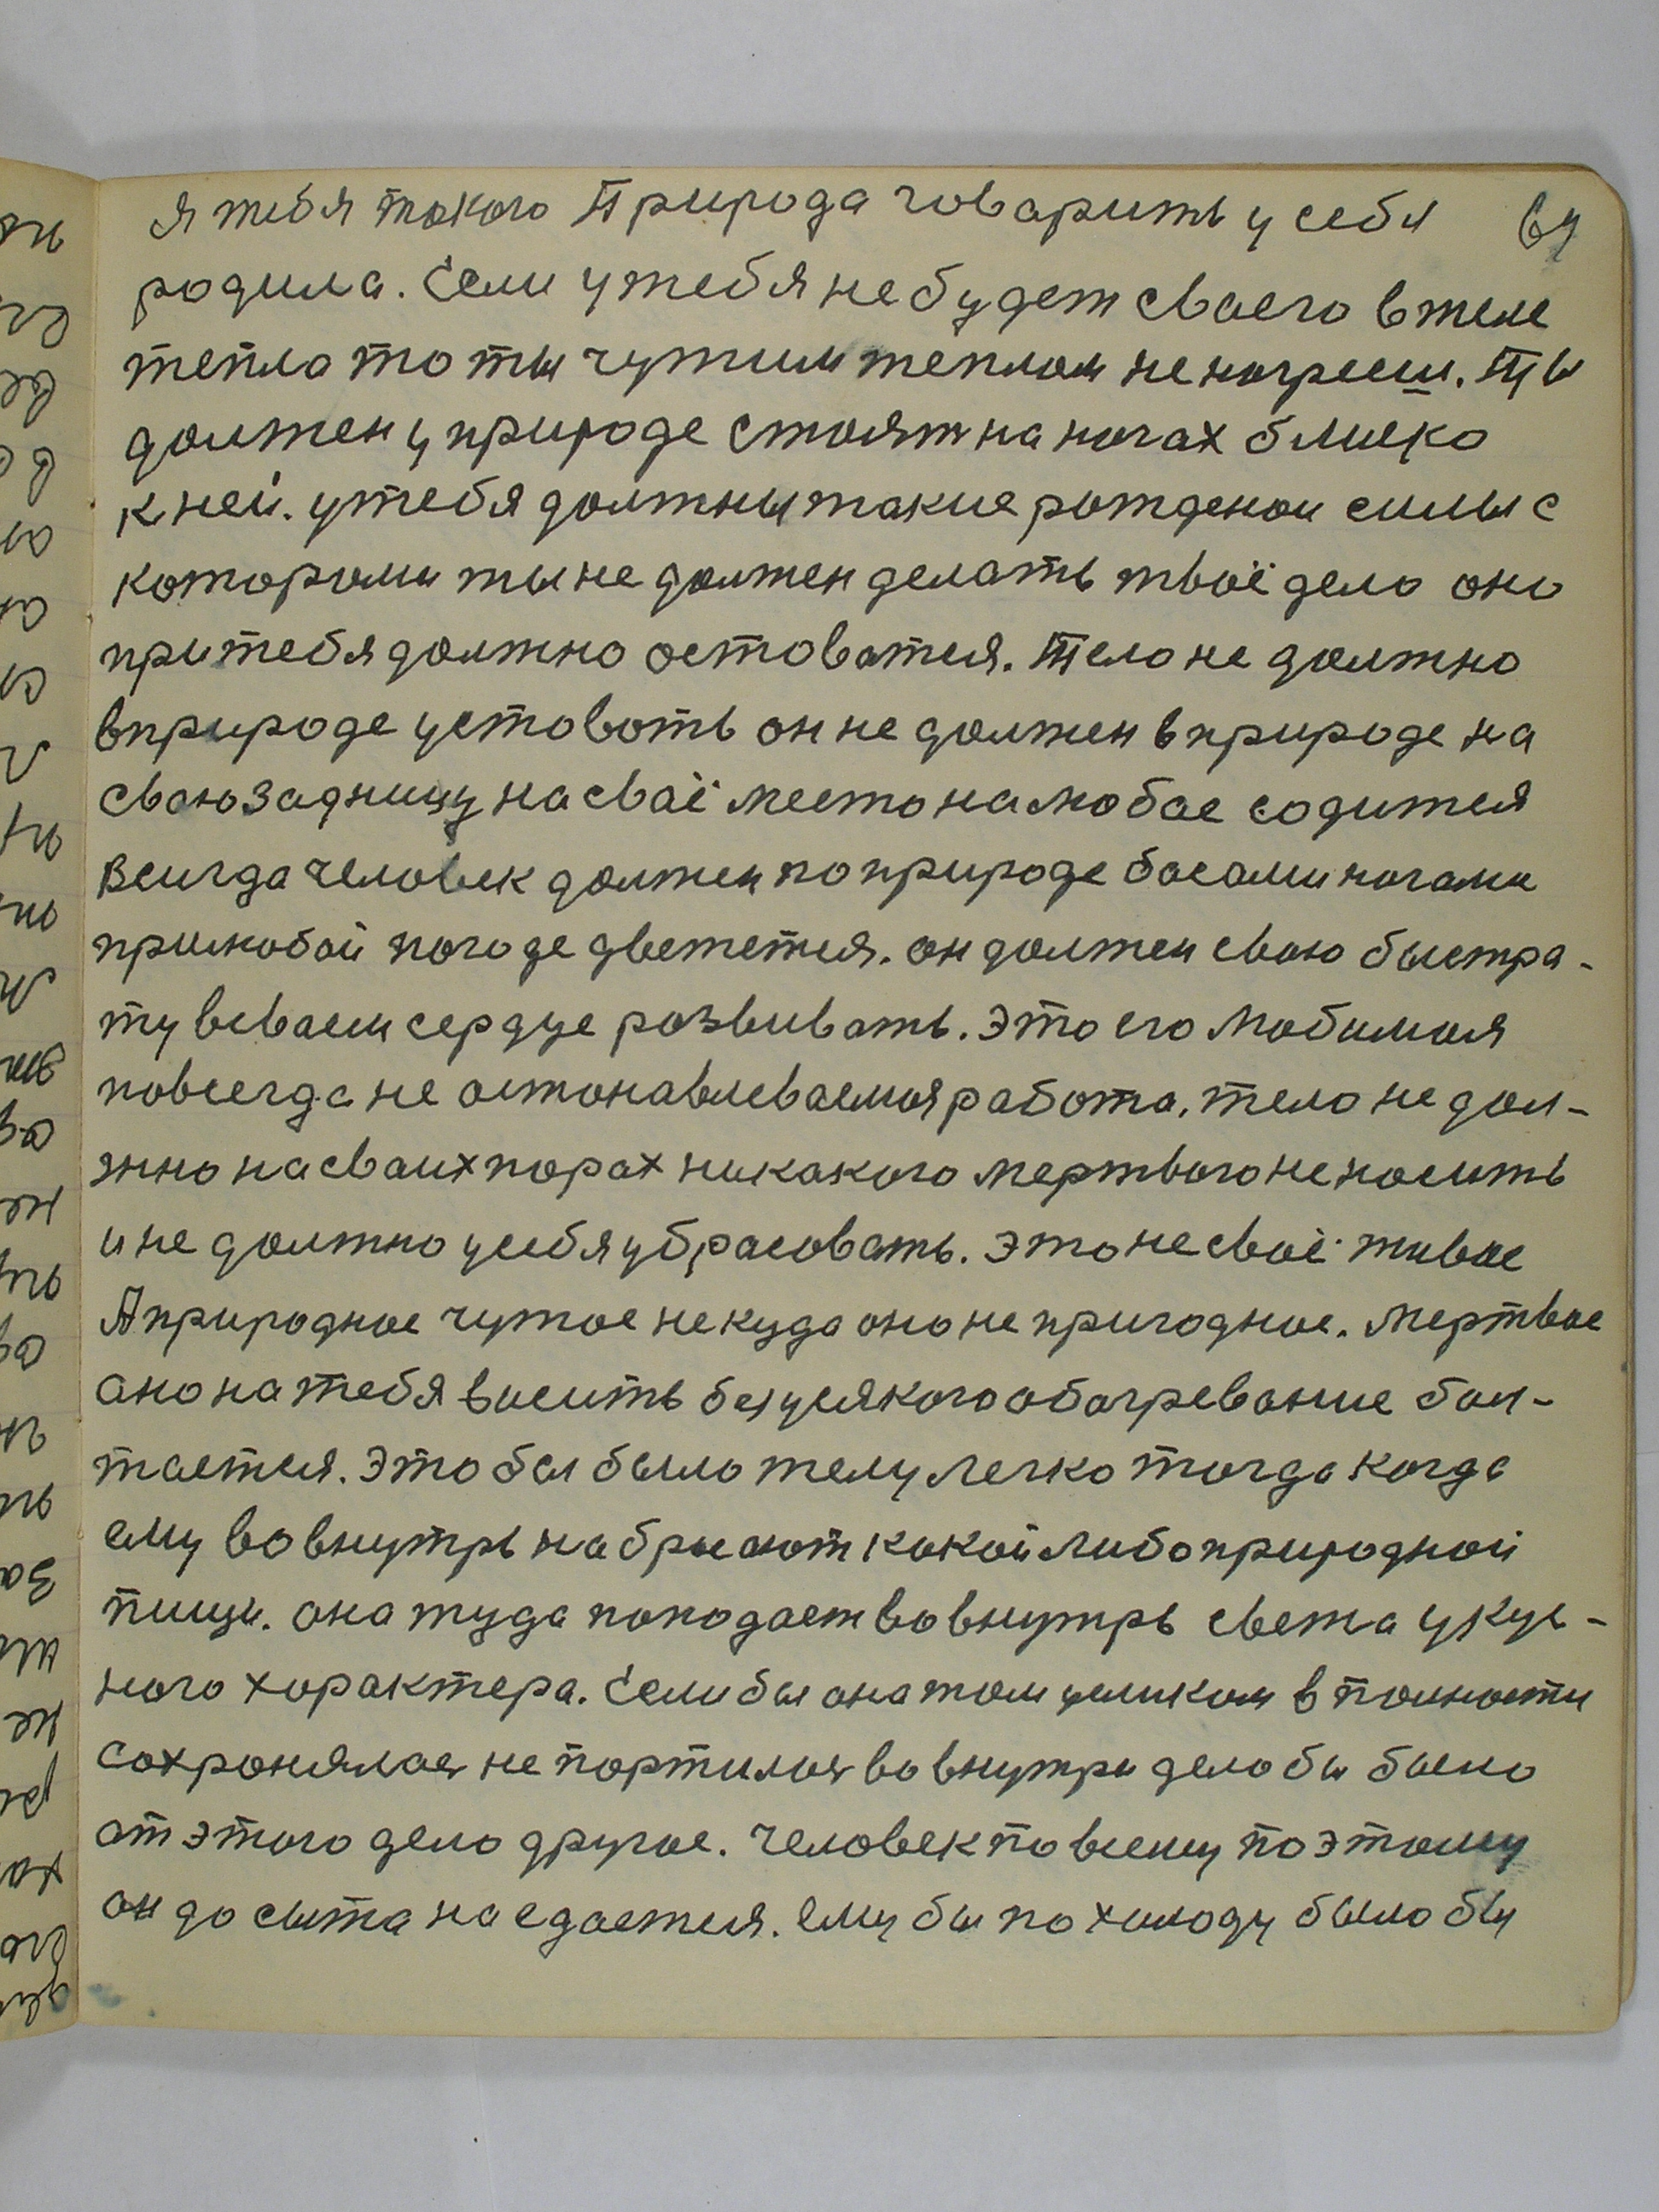 я тебя токого Природа говарить у себя 67
родила. Если у тебя не будет сваего в теле
тепла то ты чужим теплом не нагрееш. Ты
должен у природе стоят на ногах блиско
к ней. у тебя должны такие рожденои силы с
которыми ты не должен делать твоё дело оно
при тебя должно оставатся. Тело не должно
в природе уставать он не должен в природе на
сваю задницу на сваё место на любое содится
всигда человек должен по природе босами ногами
при любой погоде двежется. он должен сваю быстра-
ту в сваем сердце розвивать. Это его любимоя
повсегда не астонавлеваемоя работа. тело не дол-
жно на сваих порах никакого мертвого не носить
и не должно у себя убрасовать. Это не своё живое
А природное чужое некуда оно не пригодное. мертвое
оно на тебя висить без усякого обагревание бол-
тается. Это бы было телу легко тогда когда
ему во внутрь набрысают какой либо природной
пищи. она туда поподает во внутрь света укус-
ного характера. Если бы она там целиком в полности
сохронялась не портилась во внутри дело бы было
от этого дело другое. Человек по всему по этому
он до сыта наедается. ему бы по холоду было бы